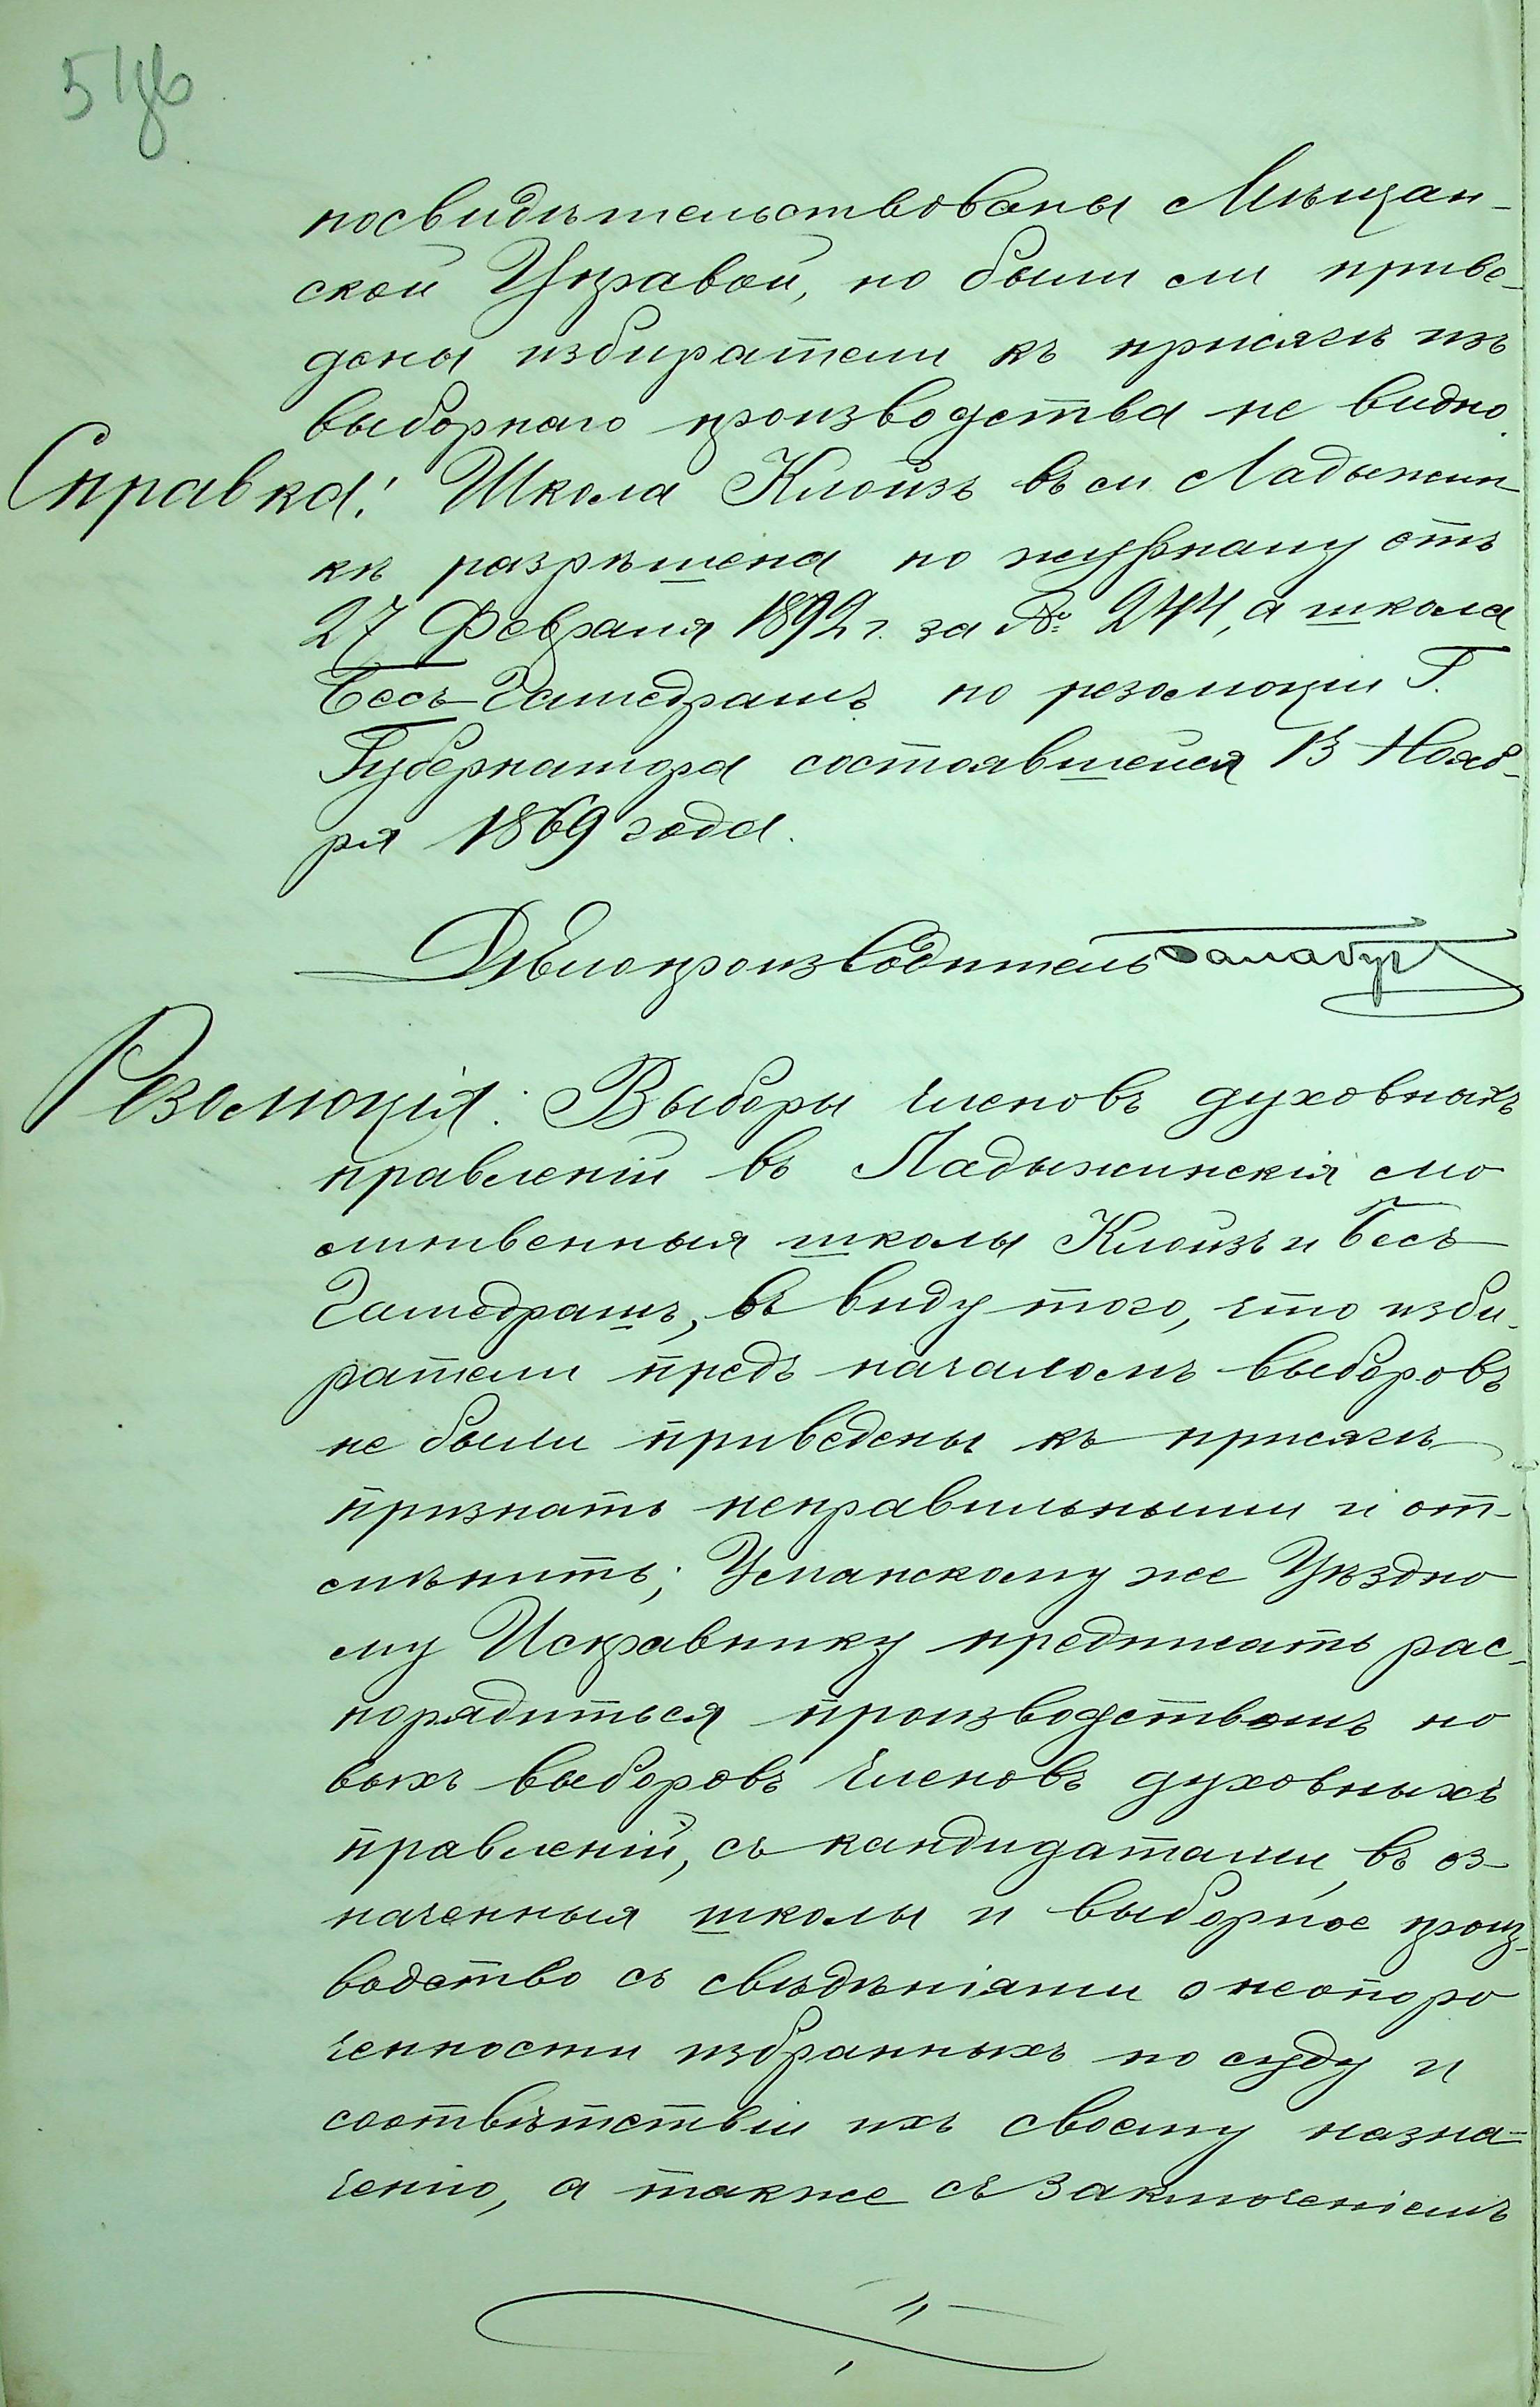 51 об
посвидѣтельствованы Мѣщан-
ской Управой, но были ли приве-
дены избиратели къ присягѣ изъ
выборнаго производства не видно.
Справка: Школа Клойзъ въ м. Ладыжин-
кѣ разрѣшена по журналу отъ
27 Февраля 1892 г. за № 244, а школа
Бесъ-Гамедрашъ по резолюціи Г.
Губернатора состоявшейся 13 Нояб-
ря 1869 года.
Дѣлопроизводитель
Резолюція: Выборы членовъ духовныхъ
правленій въ Ладыжинскія мо
литвенныя школы Клойзъ и Бесъ
Гамедрашъ, въ виду того, что изби-
ратели предъ началомъ выборовъ
не были приведены къ присягѣ
признать неправильными и от-
мѣнить; Уманскому же Уѣздно
му Исправнику предписать рас-
порядиться производствомъ но
выхъ выборовъ членовъ духовныхъ
правленій, съ кандидатами, въ оз-
наченныя школы и выборное произ-
водство съ свѣдѣніями о неопоро
ченности избранныхъ по суду и
соотвѣтствіи ихъ своему назна-
ченію, а также съ заключеніемъ